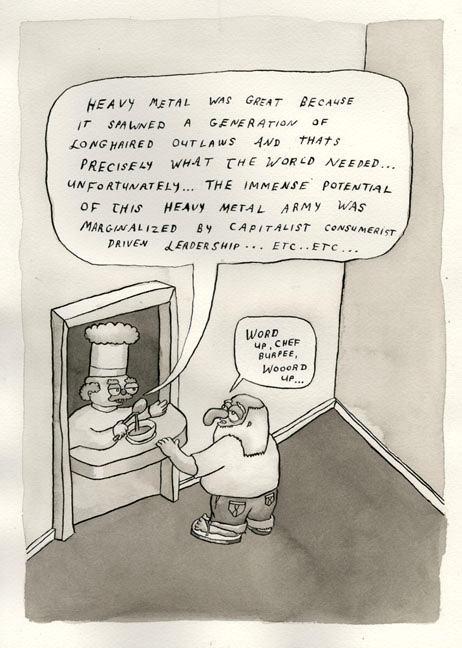 HEAVY METAL WAS GREAT BECAUSE
IT SPAWNED A GENERATION OF
LONGHAIRED OUTLAWS AND THATS
PRECISELY WHAT THE WORLD NEEDED...
UNFORTUNATELY... THE IMMENSE POTENTIAL
OF THIS HEAVY METAL ARMY WAS
MARGINALIZED BY CAPITALIST CONSUMERIST
DRIVEN LEADERSHIP... ETC..ETC...
WORD
UP, CHEF
BURPEE,
WOOORD
UP...